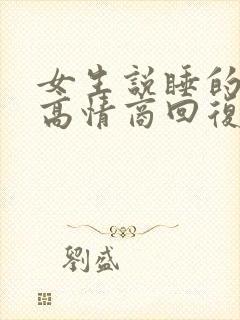 女生説睡的
高情商回復
劉盛